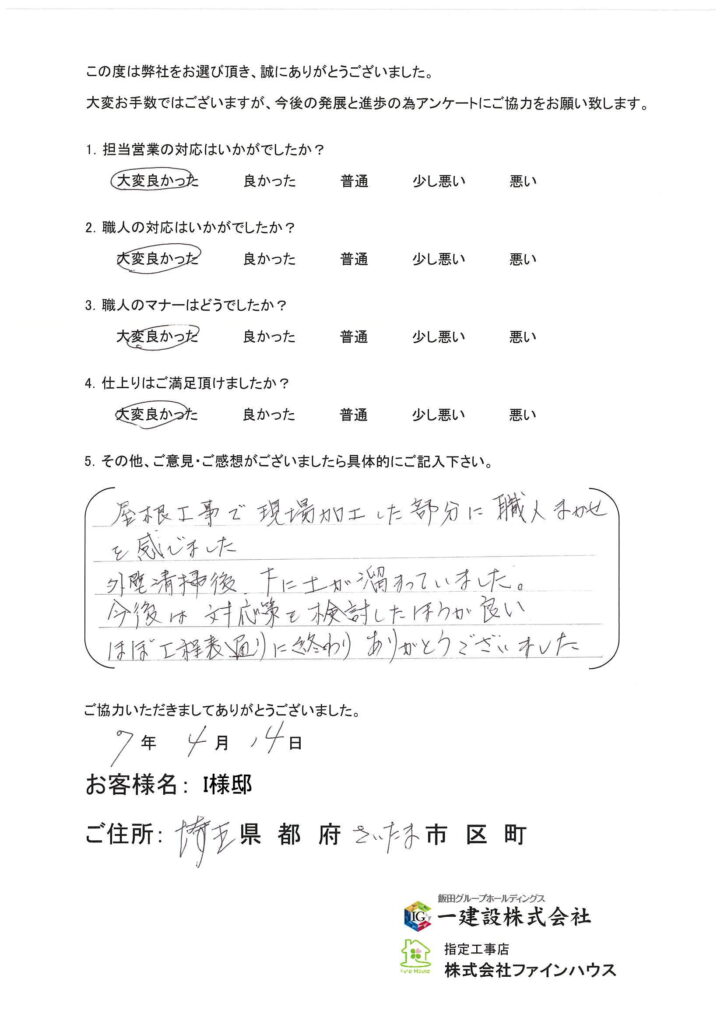 この度は弊社をお選び頂き、誠にありがとうございました。
大変お手数ではございますが、今後の発展と進歩の為アンケートにご協力をお願い致します。
1. 担当営業の対応はいかがでしたか？
大変良かった 良かった 普通 少し悪い 悪い
2. 職人の対応はいかがでしたか？
大変良かった 良かった 普通 少し悪い 悪い
3. 職人のマナーはどうでしたか？
大変良かった 良かった 普通 少し悪い 悪い
4. 仕上りはご満足頂けましたか？
大変良かった 良かった 普通 少し悪い 悪い
5. その他、ご意見・ご感想がございましたら具体的にご記入下さい。
屋根工事で現場加工した部分に職人まかせ
を感じました
外壁清掃後、下に土が溜まっていました。
今後は対応策を検討したほうが良い
ほぼ工程表通りに終わりありがとうございました
ご協力いただきましてありがとうございました。
7年 4月 14日
お客様名： I様邸
ご住所： 埼玉県 都 府 さいたま市 区 町
飯田グループホールディングス
IG 一建設株式会社
指定工事店
株式会社ファインハウス